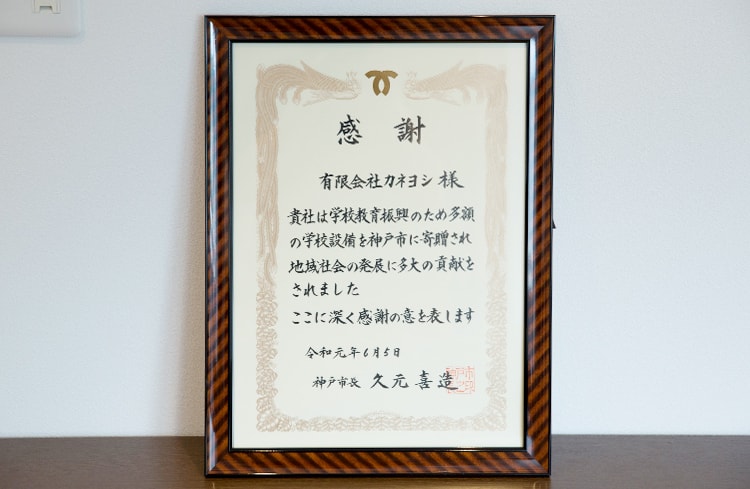 感謝
有限会社カネヨシ 様
貴社は学校教育振興のため多額
の学校設備を神戸市に寄贈され
地域社会の発展に多大の貢献を
されました
ここに深く感謝の意を表します
令和元年6月5日
神戸市長 久元喜造